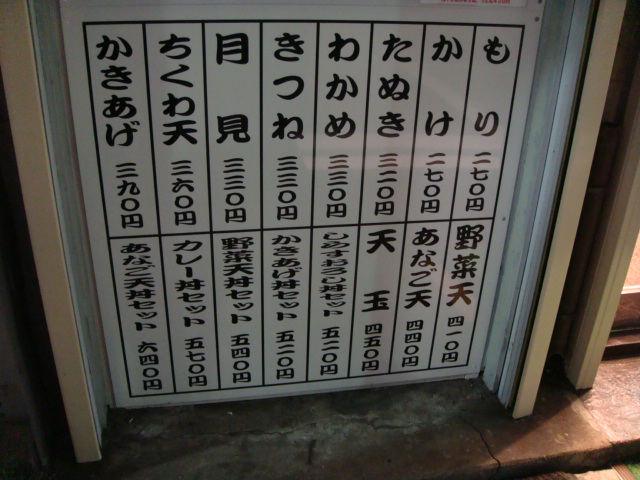 もり 二七〇円
かけ 二七〇円
たぬき 三二〇円
わかめ 三三〇円
きつね 三三〇円
月見 三三〇円
ちくわ天 三六〇円
かきあげ 三九〇円
野菜天 四一〇円
あなご天 四四〇円
天玉 四五〇円
しらすおろし丼セット 五二〇円
かきあげ丼セット 五二〇円
野菜天丼セット 五四〇円
カレー丼セット 五七〇円
あなご天丼セット 六四〇円